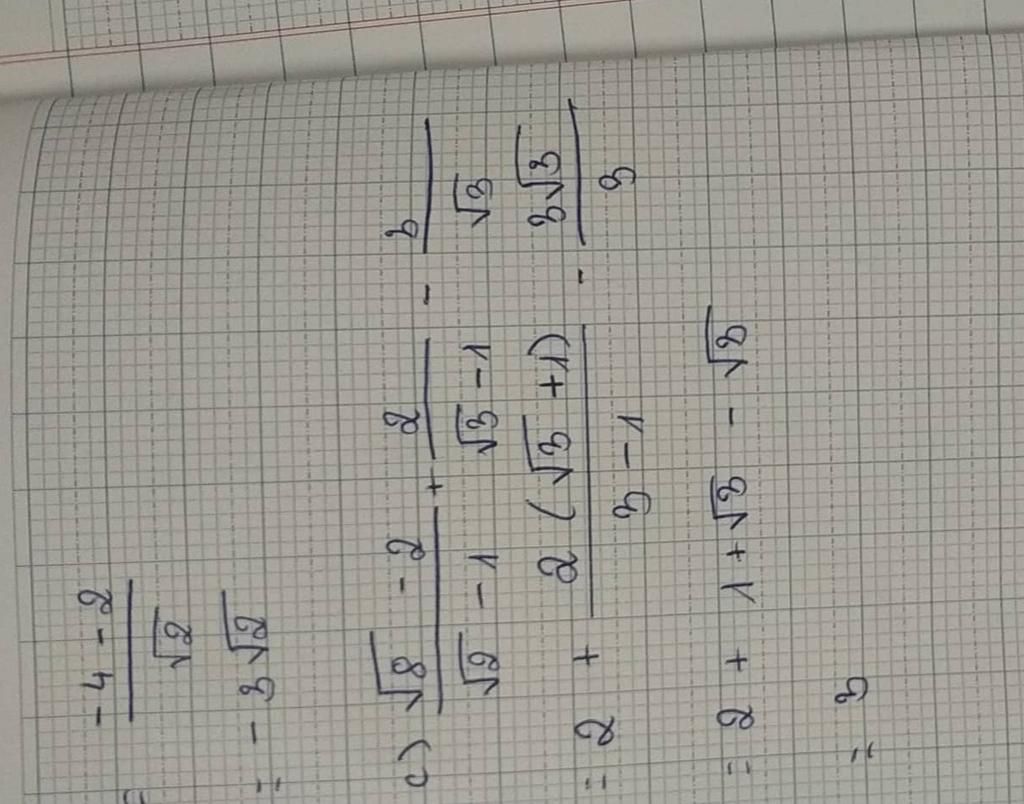 = (-4 - 2)/√2
= -3√2
c) (√8 - 2)/(√2 - 1) + 2/(√3 - 1) - 3/√3
= 2 + 2(√3 + 1)/(3 - 1) - 3√3/3
= 2 + 1 + √3 - √3
= 3